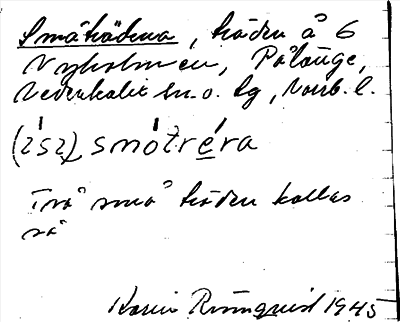 Småträdena, träden å 6
Nyholmen, På Långe,
Nederkalix sn. o. lg, Norrb. l.
smótréra
Två små träden kallas
så
Karin Rönnquist 1945